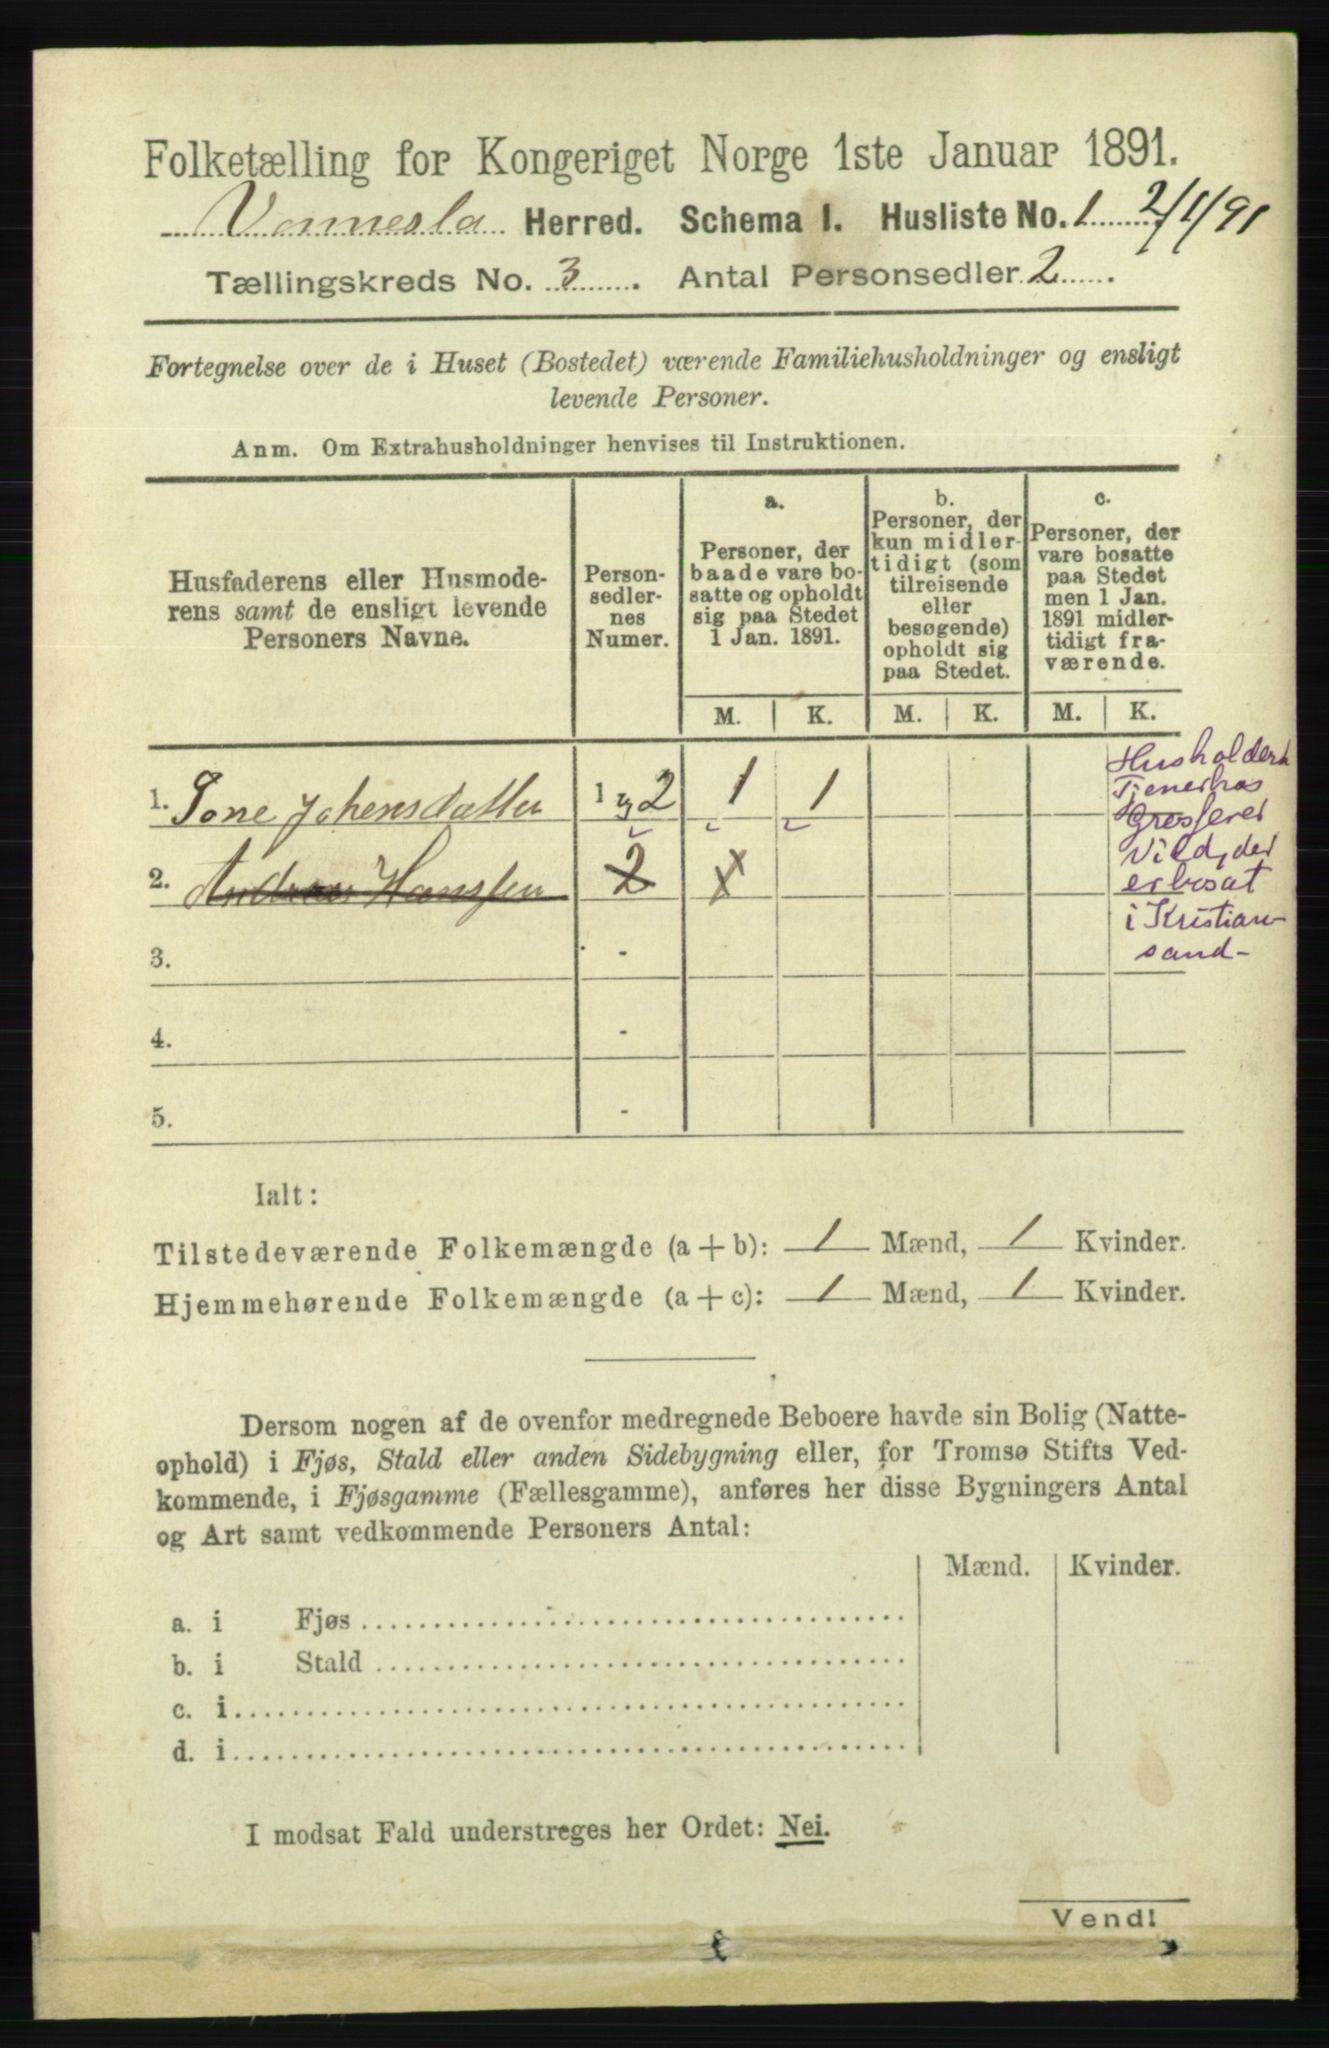 Folketælling for Kongeriget Norge 1ste Januar 1891.
Vennesla Herred. Schema I. Husliste No. 1 2/1/91
Tællingskreds No. 3. Antal Personsedler 2.
Fortegnelse over de i Huset (Bostedet) værende Familiehusholdninger og ensligt
levende Personer.
Anm. Om Extrahusholdninger henvises til Instruktionen.
Husfaderens eller Husmode-
rens samt de ensligt levende
Personers Navne.
Person-
sedler-
nes
Numer.
a.
Personer, der
baade vare bo-
satte og opholdt
sig paa Stedet
1 Jan. 1891.
b.
Personer, der
kun midler-
tidigt (som
tilreisende
eller
besøgende)
opholdt sig
paa Stedet.
c.
Personer, der
vare bosatte
paa Stedet
men 1 Jan.
1891 midler-
tidigt fra-
værende.
M. K. M. K. M. K.
1. Tone Johensdatter 1 og 2 1 1
2. Andreas Hanssen 2 x
3. -
4. -
5. -
Husholder
Tjener hos
Grosserer
Vild, der
er bosat
i Kristian-
sand-
Ialt:
Tilstedeværende Folkemængde (a + b): 1 Mænd, 1 Kvinder.
Hjemmehørende Folkemængde (a + c): 1 Mænd, 1 Kvinder.
Dersom nogen af de ovenfor medregnede Beboere havde sin Bolig (Natte-
ophold) i Fjøs, Stald eller anden Sidebygning eller, for Tromsø Stifts Ved-
kommende, i Fjøsgamme (Fællesgamme), anføres her disse Bygningers Antal
og Art samt vedkommende Personers Antal:
Mænd. Kvinder.
a. i Fjøs
b. i Stald
c. i
d. i
I modsat Fald understreges her Ordet: Nei.
Vend!